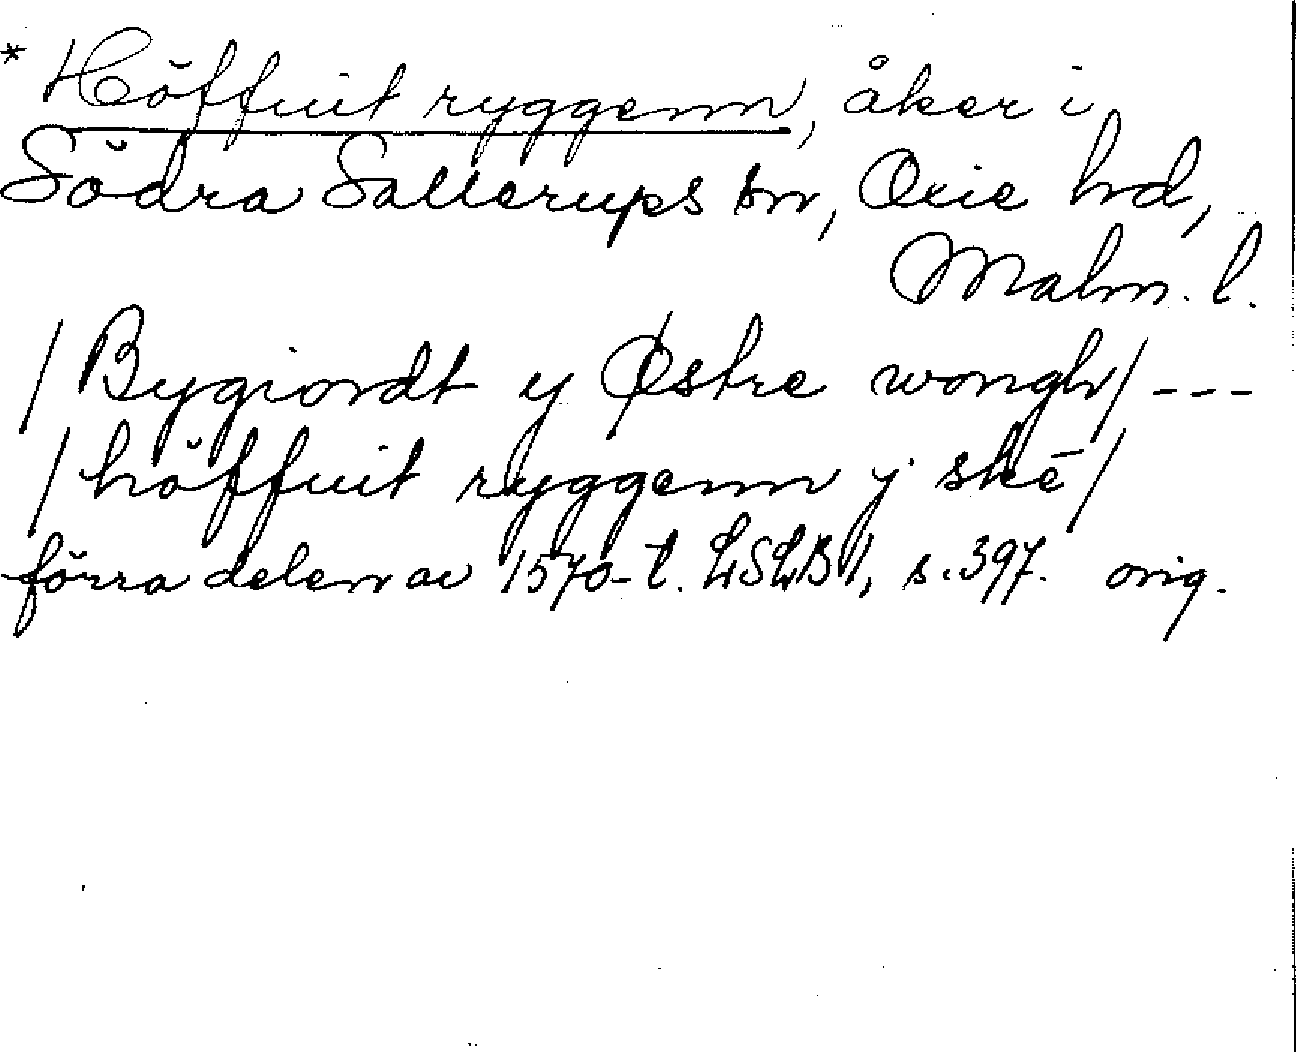 * Höffuit ryggenn, åker i
Södra Sallerups sn, Oxie hd,
Malm. l.
/ Bygiordt y Østre wongh / ---
/ höffuit ryggenn y skē /
förra delen av 1570-t. LSLB 1, s. 397. orig.